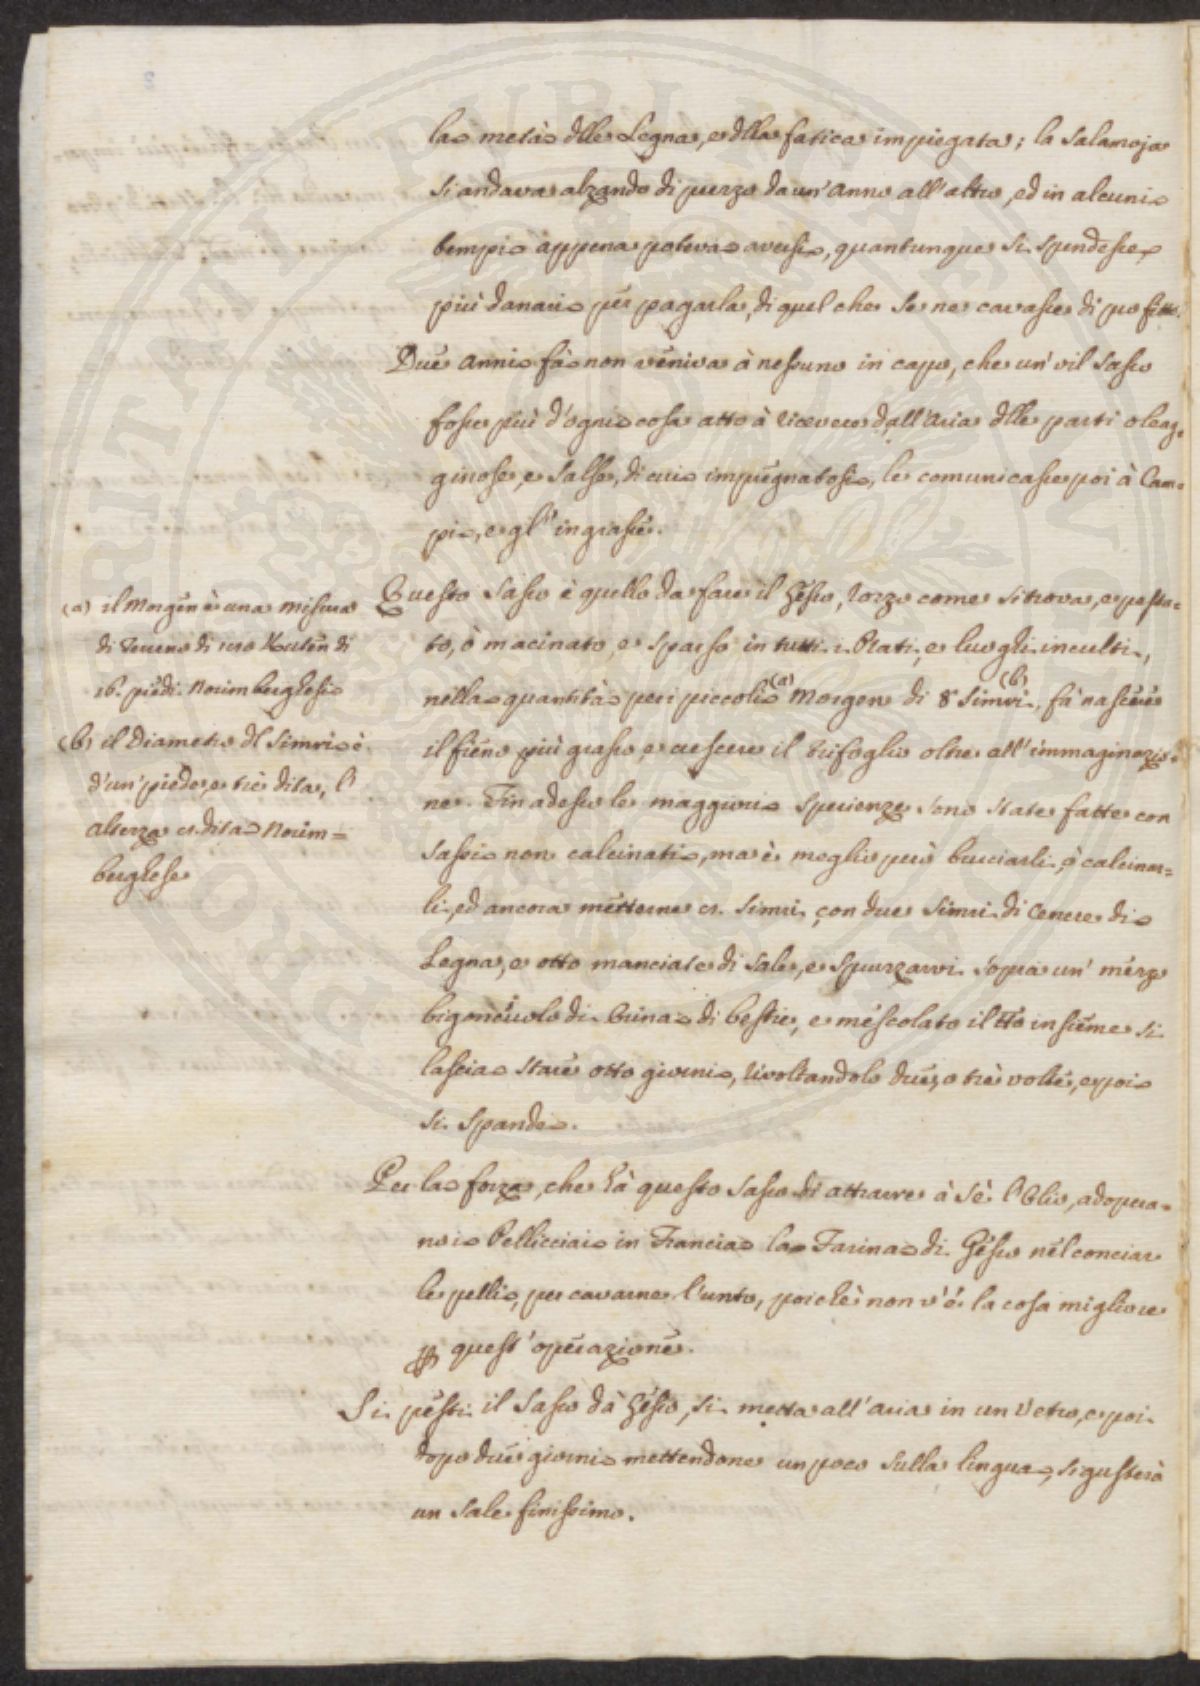 la metà dlle Legna, e dlla fatica impiegata; la Salamoja
si andava alzando di prezzo da un' anno all' altro, ed in alcuni
tempi appena poteva aversi, quantunque si spendesse
più danari per pagarla, di quel che se ne cavasse di profitto.
Due anni fà non veniva à nessuno in capo, che un' vil Sasso
fosse più d'ogni cosa atto à ricevere dall' Aria dlle parti oleag-
ginose, e salse, di cui impregnatosi, le comunicasse poi à Cam-
pi, e gl' ingrassi.
Questo Sasso è quello da fare il Gesso, rozzo come si trova, e pesta-
to, ò macinato, e sparso in tutti i Prati, e luoghi inculti,
nella quantità per i piccoli (a) Morgen di 8 Simri (b), fà nascere
il fieno più grasso, e crescere il trifoglio oltre all' immaginazio-
ne. Fin adesso le maggiori sperienze sono state fatte con
Sassi non calcinati, ma è meglio però bruciarli, ò calcinar-
li, ed ancora metterne Simri, con due Simri di Cenere di
Legna, e otto manciate di Sale, e spruzzarvi sopra un' mezzo
bigonciuolo di Orina di bestie, e mescolato il tto insieme si
lascia stare otto giorni, rivoltandolo due, o trè volte, e poi
si spande.
Per la forza, che hà questo Sasso di attraere à sè l'Olio, adopera-
no i Pellicciai in Francia la Farina di Gesso nel conciar
le pelli, per cavarne l'unto, poichè non v'è la cosa migliore
p quest' operazione.
Si pesti il Sasso dà Gesso, si metta all' aria in un Vetro, e poi
dopo due giorni mettendone un poco sulla lingua, si gusterà
un Sale finissimo.
(a) il Morgen è una misura
di Terreno di Ruten di
16. piedi Norimberghesi
(b) il Diametro dl Simri è
d'un' piede, e trè dita, l'
altezza dita Norim=
berghese